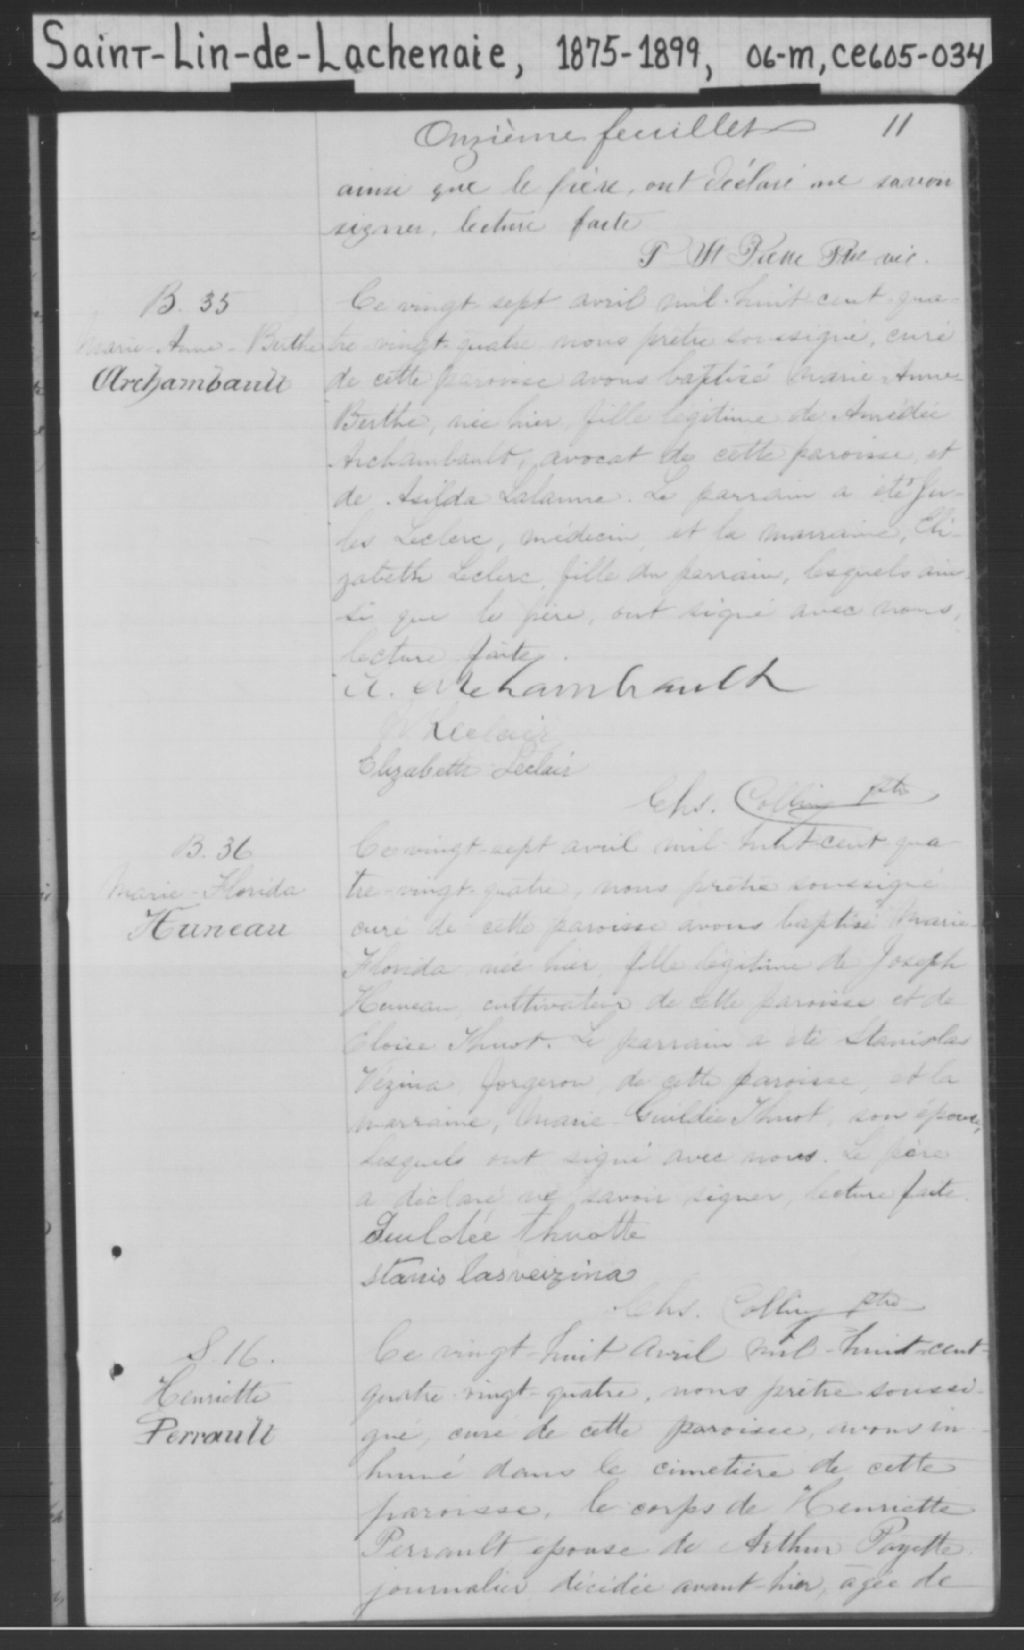 Saint-Lin-de-Lachenaie, 1875-1899, 06-m, CE605-034
Onzième feuillet 11
ainsi que le père, ont déclaré ne savoir
signer, lecture faite
P St Pierre Ptre vic.
B. 35
Marie-Anne-Berthe
Archambault
Ce vingt-sept avril mil-huit-cent-qua-
tre-vingt-quatre nous prêtre soussigné, curé
de cette paroisse avons baptisé Marie-Anne-
Berthe, née hier, fille légitime de Amédée
Archambault, avocat de cette paroisse, et
de Asilda Lalanne. Le parrain a été Ju-
les Leclerc, médecin, et la marraine, Eli-
zabeth Leclerc, fille du parrain, lesquels ain-
si que le père, ont signé avec nous,
lecture faite.
A. Archambault
Leclair
Elizabeth Leclair
Chs. Collin ptre
B. 36
Marie-Florida
Huneau
Ce vingt-sept avril mil-huit-cent-qua-
tre-vingt-quatre, nous prêtre soussigné
curé de cette paroisse avons baptisé Marie-
Florida née hier, fille légitime de Joseph
Huneau, cultivateur de cette paroisse et de
Eloise Thuot. Le parrain a été Stanislas
Vézina, forgeron, de cette paroisse, et la
marraine, Marie-Guildée Thuot, son épouse,
lesquels ont signé avec nous. Le père
a déclaré ne savoir signer, lecture faite.
Guildée thuotte
Stanislas veizina
Chs. Collin ptre
S. 16.
Henriette
Perrault
Ce vingt-huit avril mil-huit-cent-
quatre-vingt-quatre, nous prêtre soussi-
gné, curé de cette paroisse, avons in-
humé dans le cimetière de cette
paroisse, le corps de Henriette
Perrault épouse de Arthur Payette
journalier, décédée avant-hier, agée de